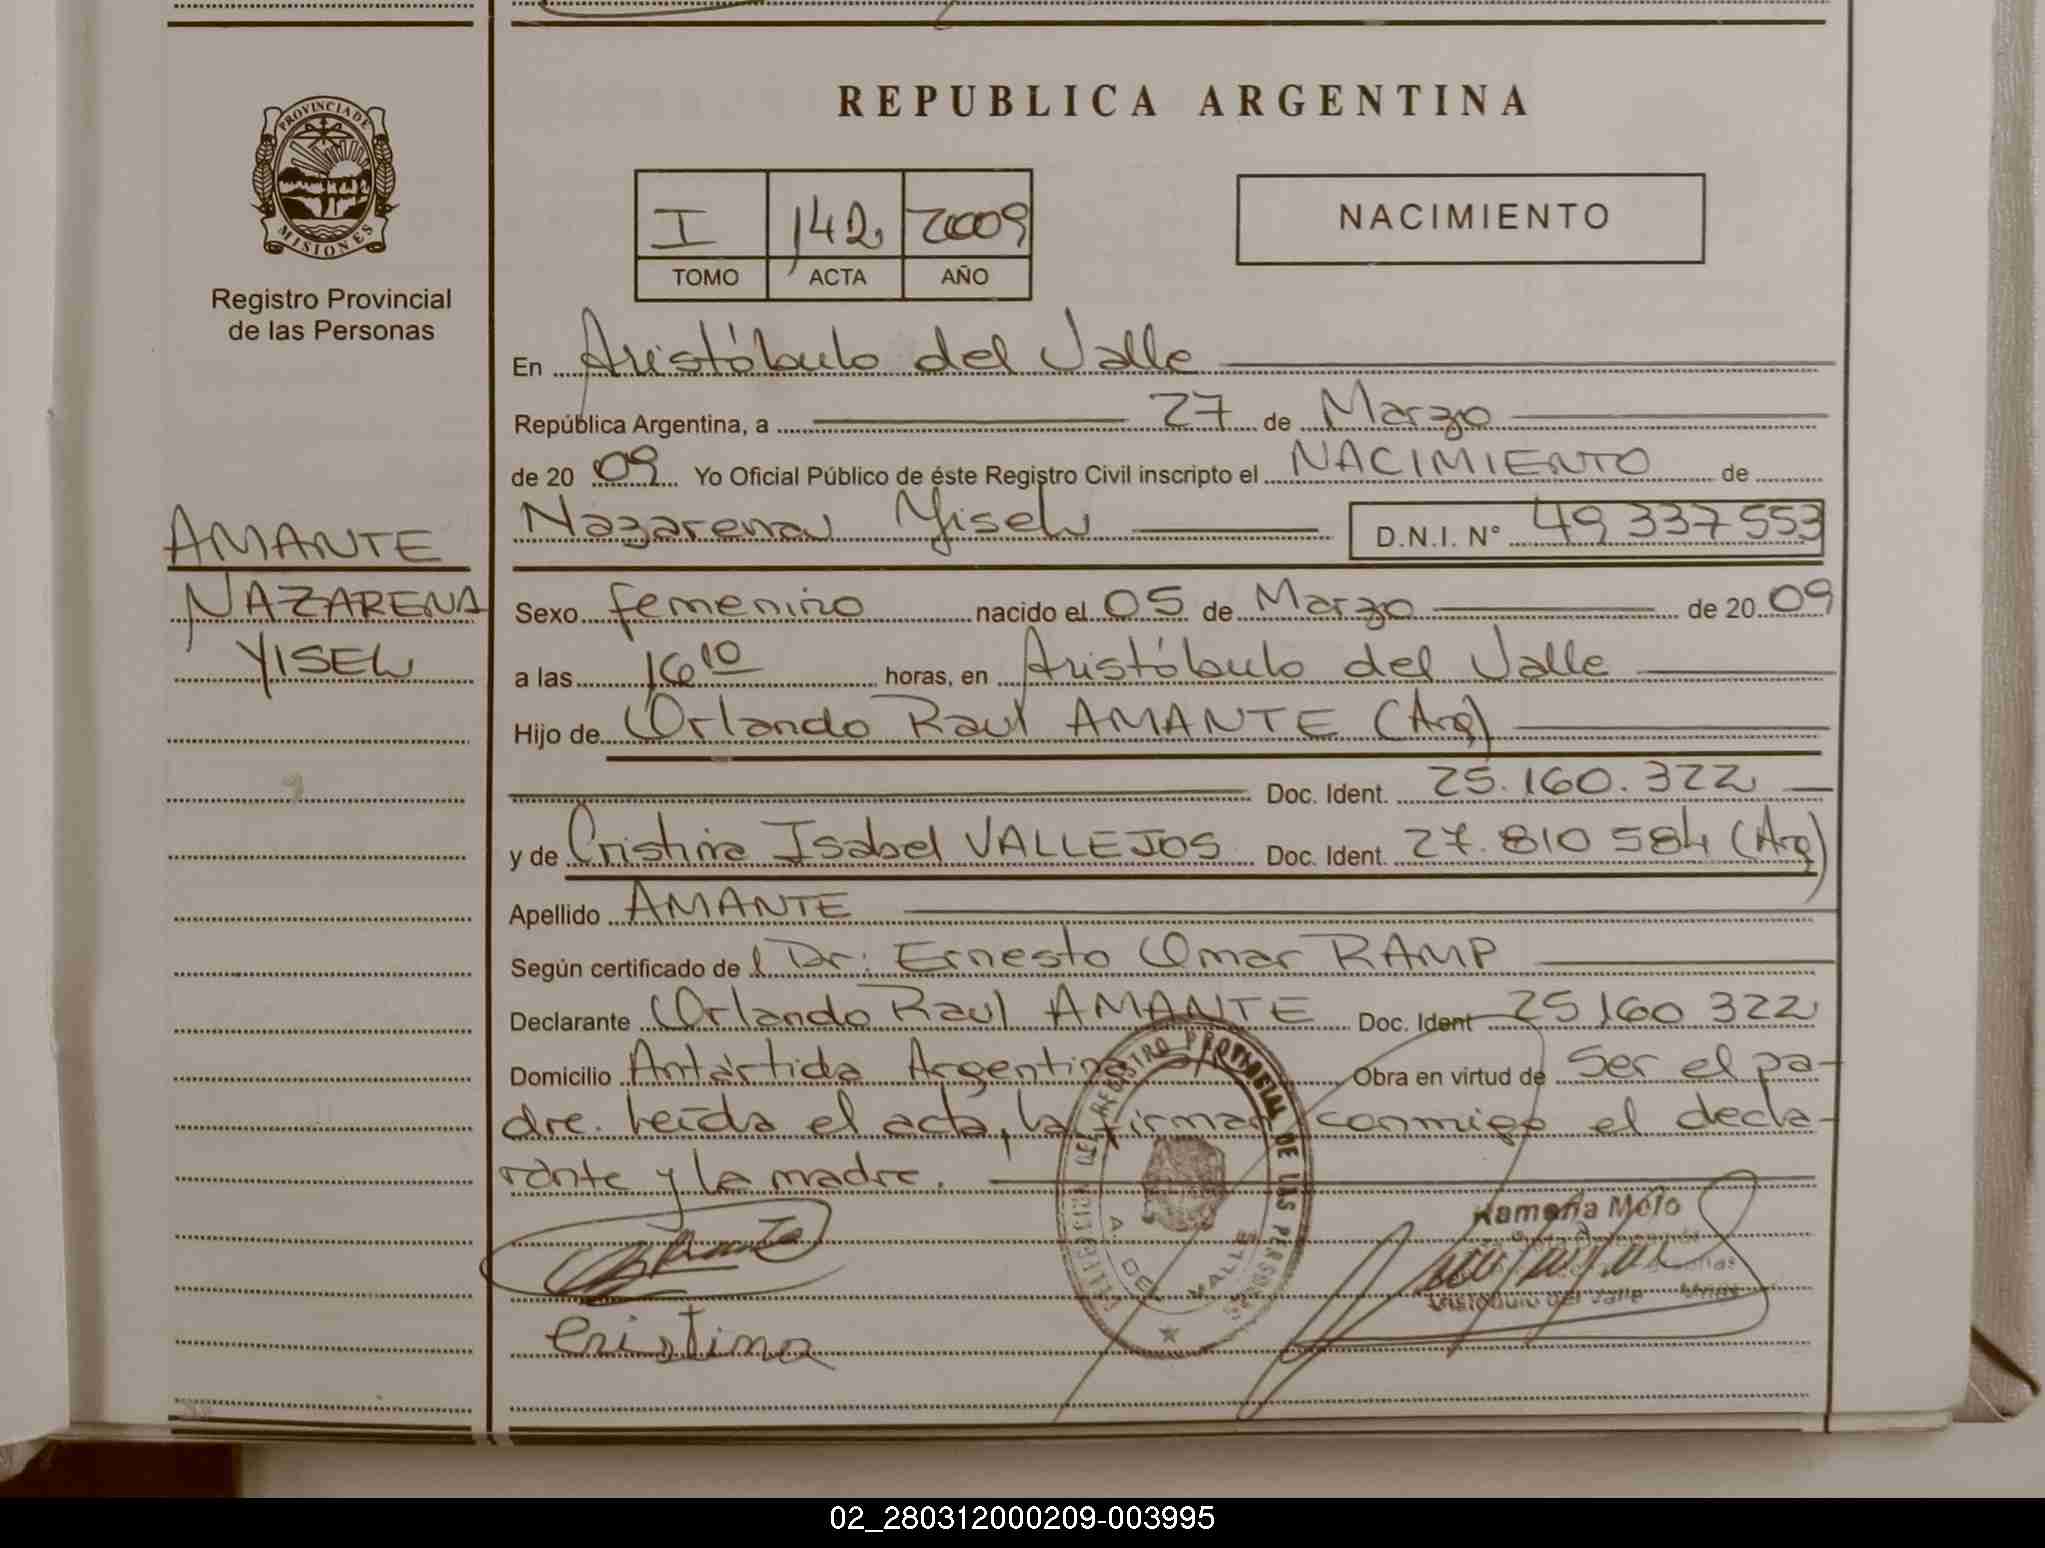 PROVINCIA DE
MISIONES
Registro Provincial
de las Personas
AMANTE
NAZARENA
YISEL
REPUBLICA ARGENTINA
I 142 2009
TOMO ACTA AÑO
NACIMIENTO
En Aristóbulo del Valle
República Argentina, a 27 de Marzo
de 20 09 Yo Oficial Público de éste Registro Civil inscripto el NACIMIENTO de
Nazarena Yisel D.N.I. N° 49 337 553
Sexo femenino nacido el 05 de Marzo de 20 09
a las 16 10 horas, en Aristóbulo del Valle
Hijo de Orlando Raul AMANTE (Arg)
Doc. Ident. 25.160.322
y de Cristina Isabel VALLEJOS Doc. Ident. 27.810 584 (Arg)
Apellido AMANTE
Según certificado de l Dr: Ernesto Omar RAMP
Declarante Orlando Raul AMANTE Doc. Ident 25 160 322
Domicilio Antártida Argentina Obra en virtud de Ser el pa-
dre. Leída el acta, la firman conmigo el decla-
rante y la madre.
REGISTRO PROVINCIAL DE LAS PERSONAS
A. DEL VALLE
Ramona Melo
Aristóbulo del Valle
Cristina
02_280312000209-003995